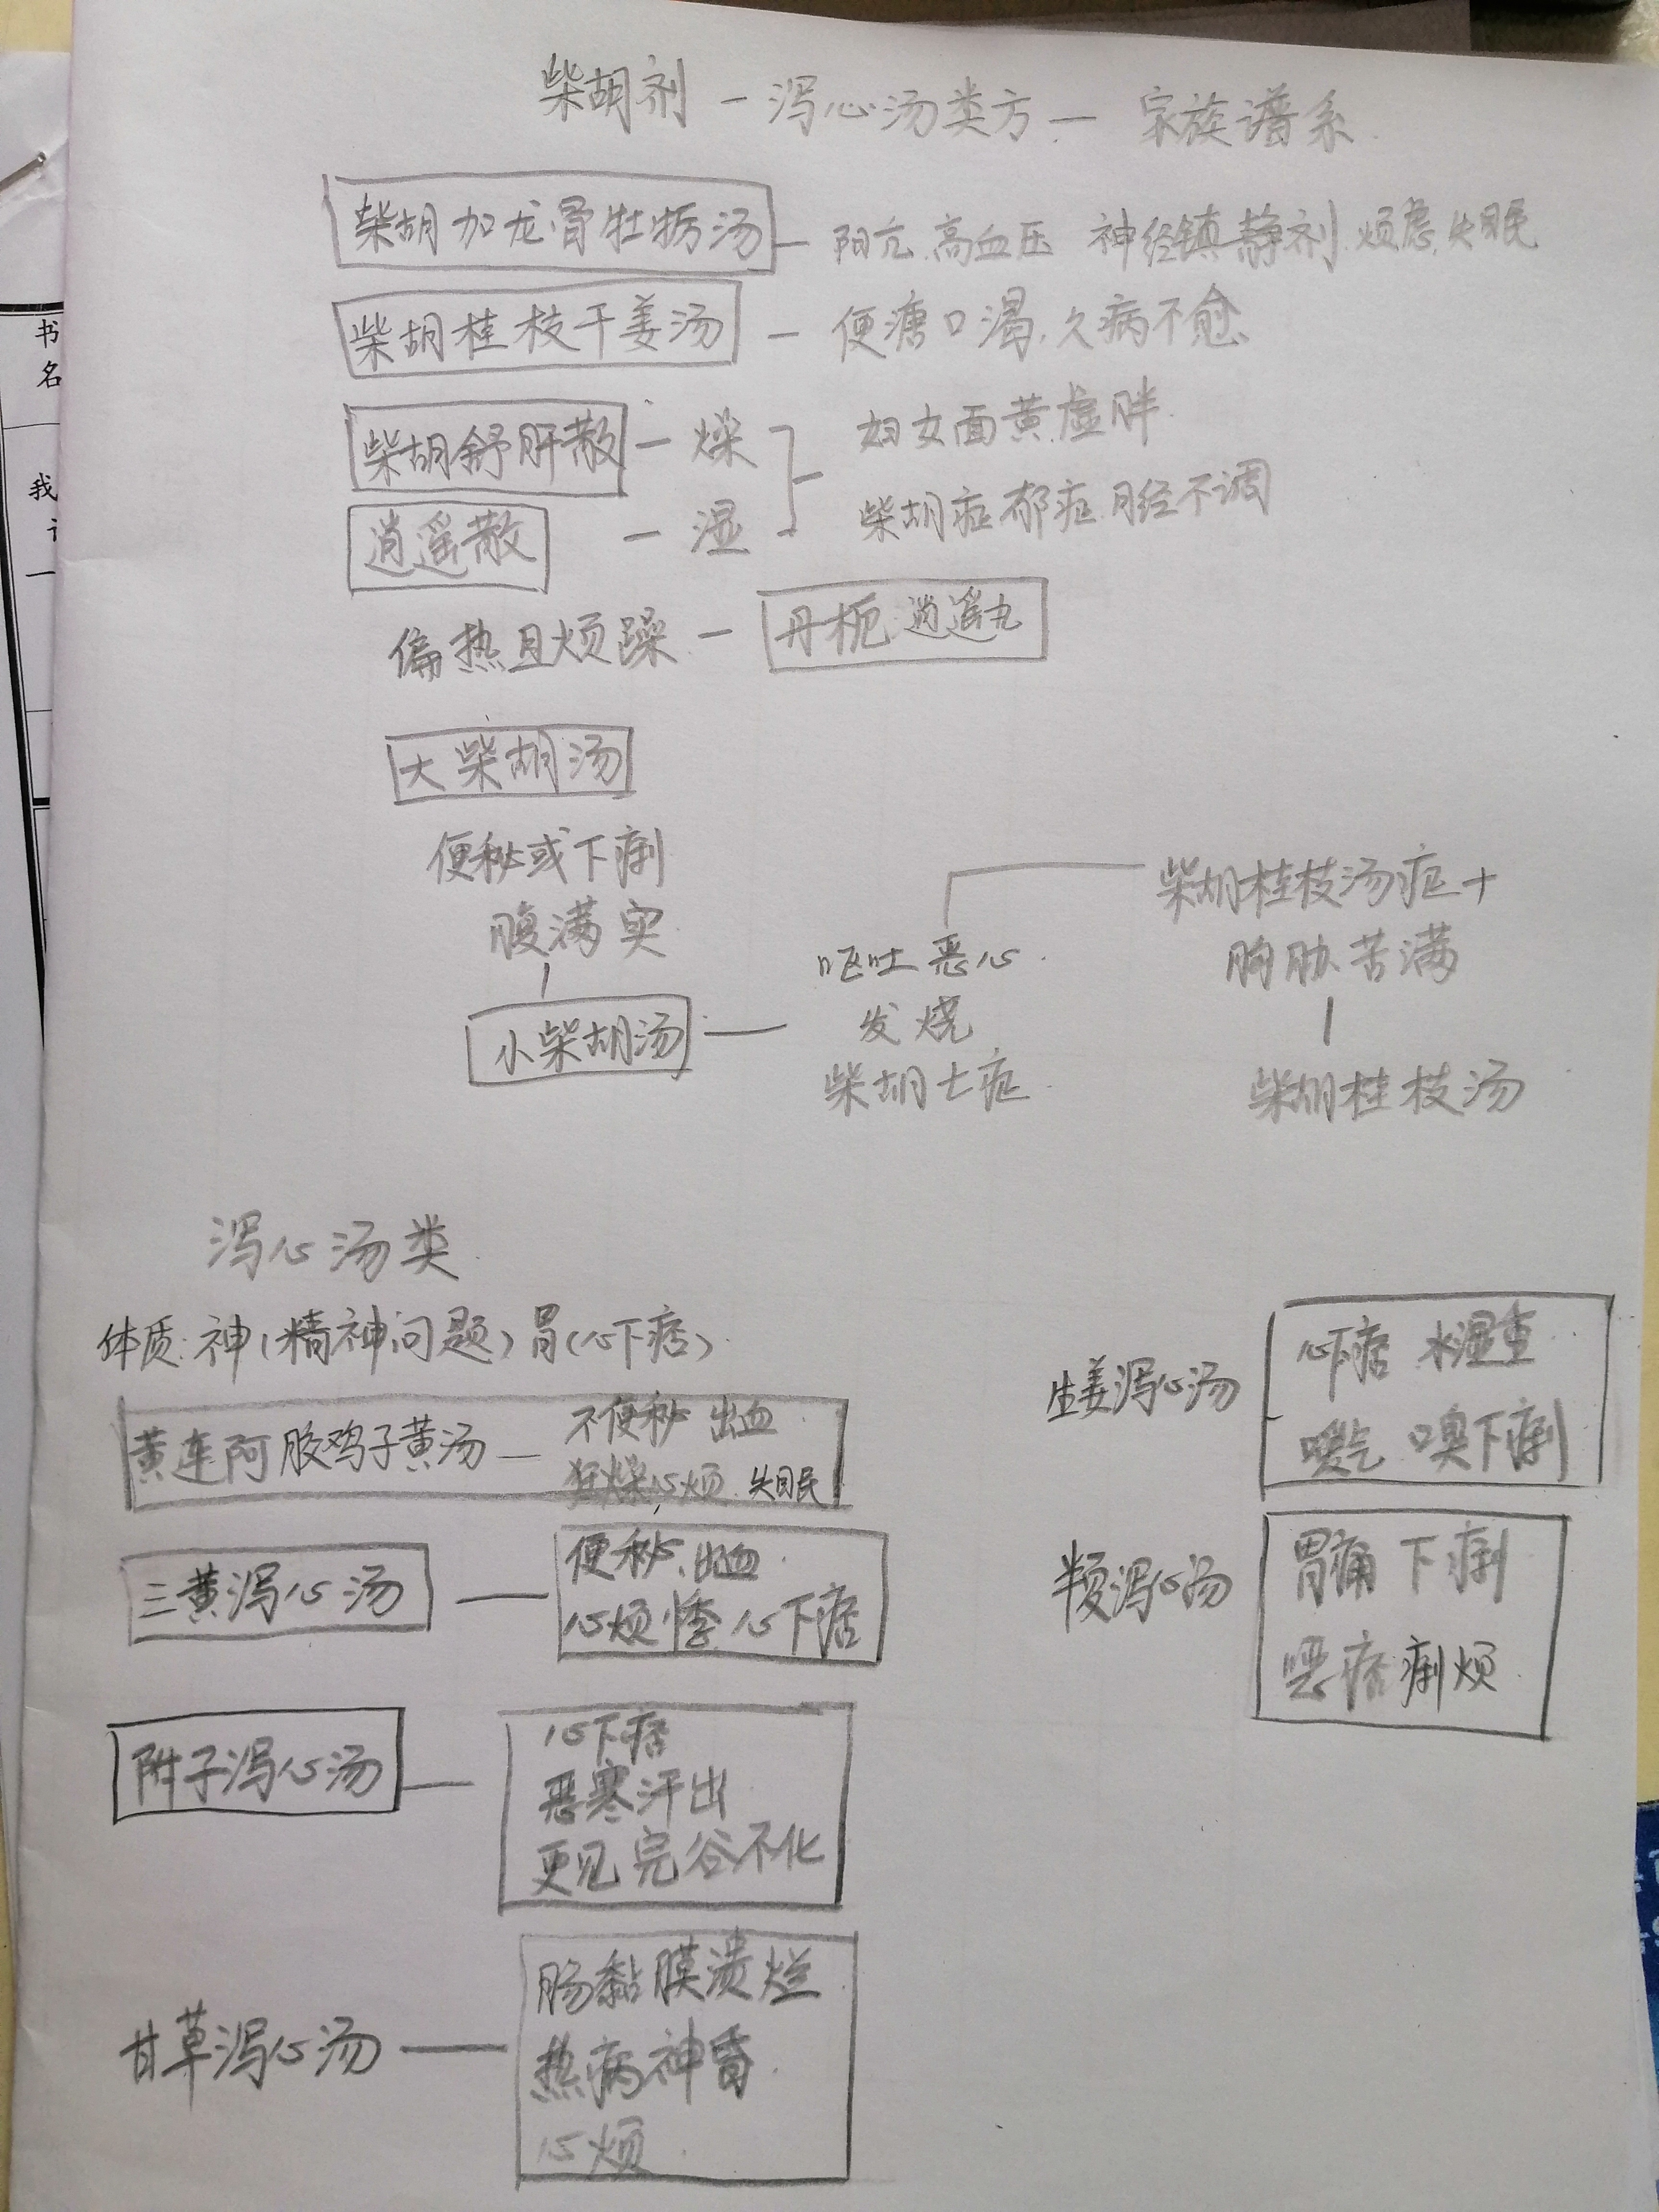 柴胡剂 — 泻心汤类方 — 家族谱系
柴胡加龙骨牡蛎汤 — 阳亢.高血压 神经镇静剂.烦虑.失眠
柴胡桂枝干姜汤 — 便溏口渴.久病不愈
柴胡舒肝散 — 燥
逍遥散 — 湿
妇女面黄虚胖
柴胡症郁症.月经不调
偏热且烦躁 — 丹栀逍遥丸
大柴胡汤
便秘或下痢
腹满实
小柴胡汤 —
呕吐恶心
发烧
柴胡七症
柴胡桂枝汤症+
胸胁苦满
柴胡桂枝汤
泻心汤类
体质:神(精神问题)胃(心下痞)
黄连阿胶鸡子黄汤 — 不便秘 出血
狂燥心烦 失眠
三黄泻心汤 — 便秘、出血
心烦悸 心下痞
附子泻心汤 — 心下痞
恶寒汗出
更见完谷不化
甘草泻心汤 — 肠黏膜溃烂
热病神昏
心烦
生姜泻心汤
心下痞 水湿重
嗳气 口臭下痢
半夏泻心汤
胃痛 下痢
恶痞痢烦
书
名
我